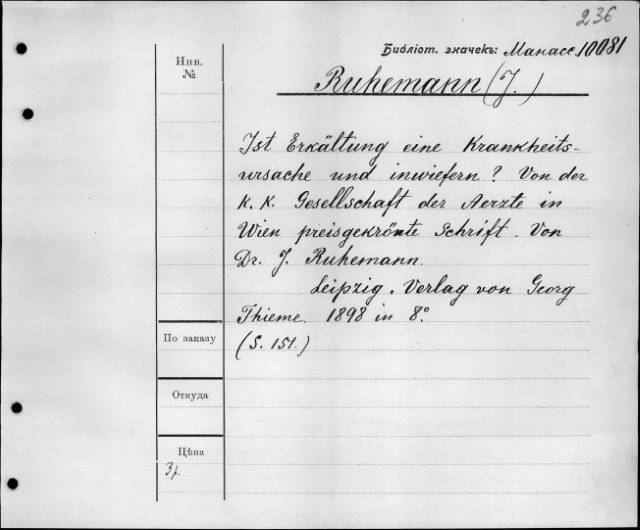 236
Библіот. значекъ: Манасс. 10081
Инв.
№
Ruhemann (J.)
Ist Erkältung eine Krankheits-
ursache und inwiefern? Von der
K. K. Gesellschaft der Aerzte in
Wien preisgekrönte Schrift. Von
Dr. J. Ruhemann.
Leipzig. Verlag von Georg
Thieme. 1898 in 8°.
(S. 151.)
По заказу
Откуда
Цѣна